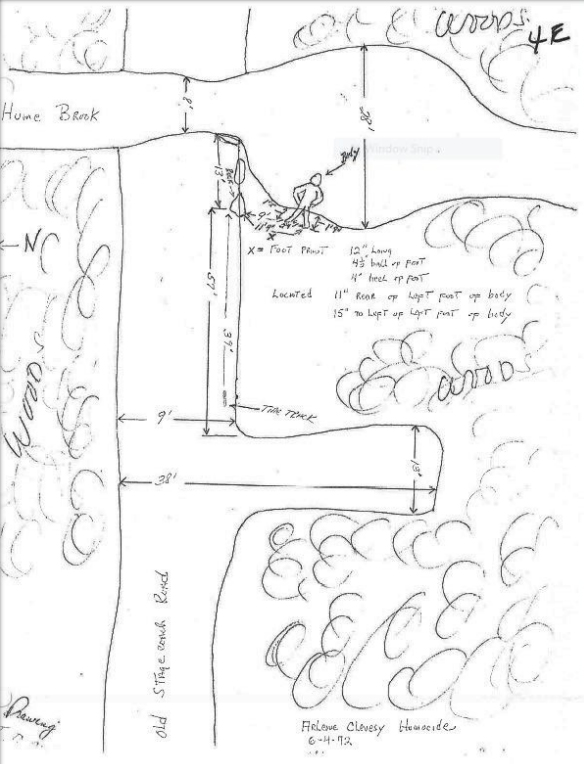 WOODS
4E
8'
Hume Brook
28'
Window Snip
Body
13'
Rock
9'
N
X = FOOT PRINT 12" Long
4½ ball of foot
4" heel of foot
Located 11" Rear of Left foot of body
15" to Left of Left foot of body
57'
39'
WOODS
WOODS
TIRE TRACK
9'
38'
Old Stagecoach Road
Drawing
Arlene Clevesy Homocide
6-4-72